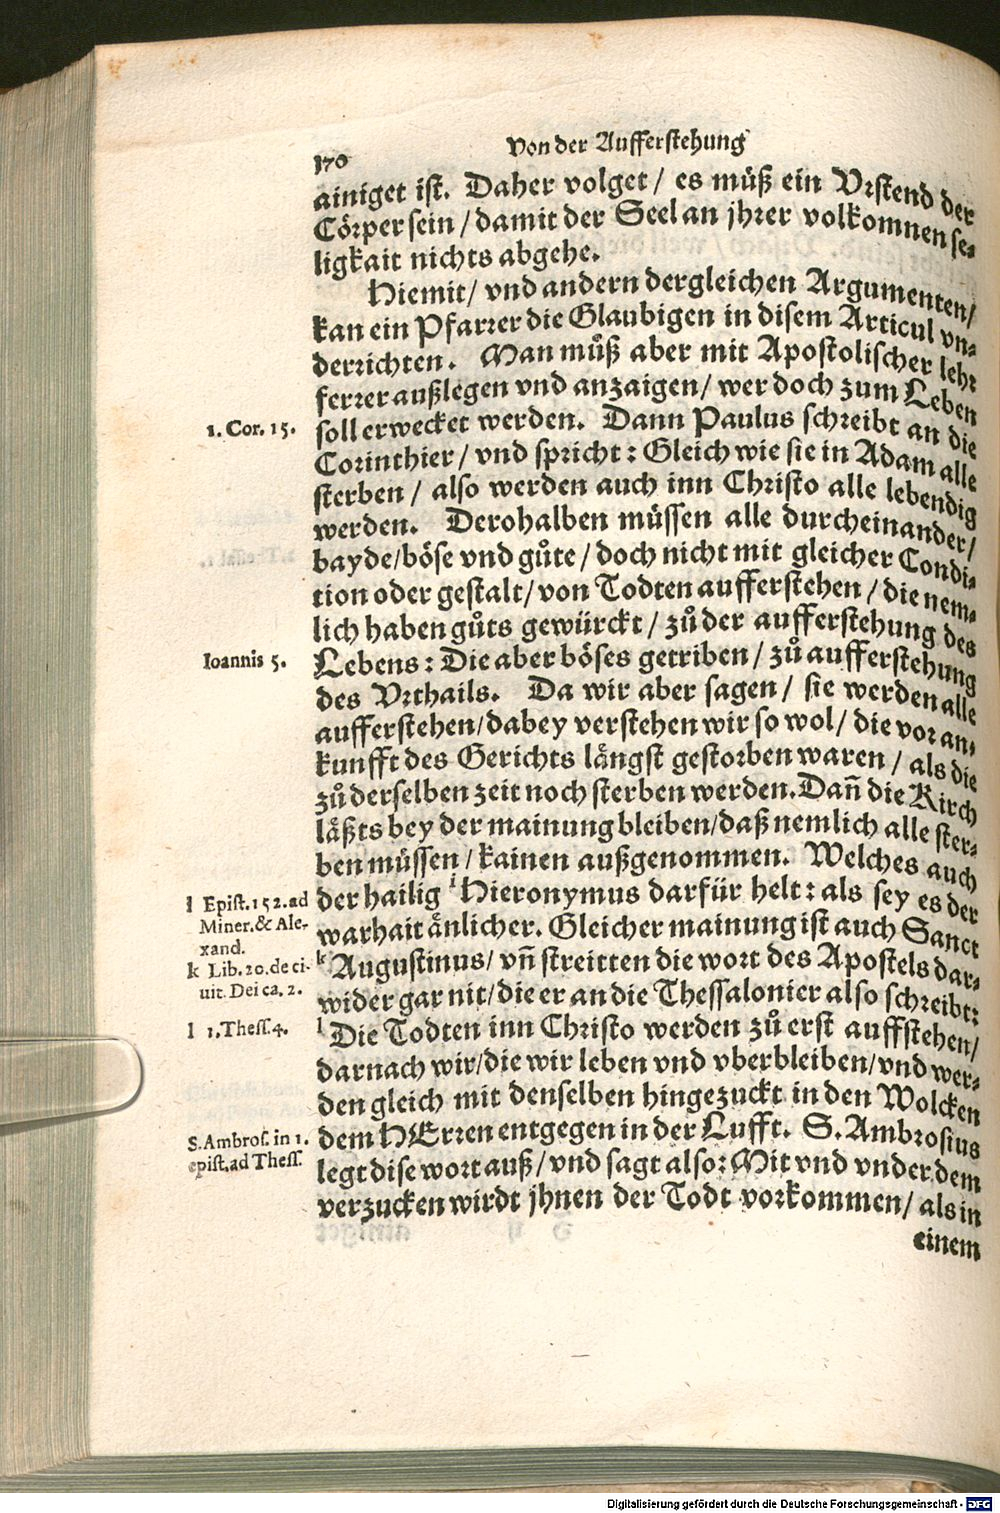 170
Von der Aufferstehung
ainiget ist. Daher volget / es müß ein Vrstend der
Cörper sein / damit der Seel an jhrer volkomnen se-
ligkait nichts abgehe.
Hiemit / vnd andern dergleichen Argumenten /
kan ein Pfarrer die Glaubigen in disem Articul vn-
derrichten. Man můß aber mit Apostolischer lehr
ferrer außlegen vnd anzaigen / wer doch zum Leben
1. Cor. 15.
soll erwecket werden. Dann Paulus schreibt an die
Corinthier / vnd spricht: Gleich wie sie in Adam alle
sterben / also werden auch inn Christo alle lebendig
werden. Derohalben müssen alle durcheinander /
bayde / böse vnd gůte / doch nicht mit gleicher Condi-
tion oder gestalt / von Todten aufferstehen / die nem-
lich haben gůts gewürckt / zů der aufferstehung des
Ioannis 5.
Lebens: Die aber böses getriben / zů aufferstehung
des Vrthails. Da wir aber sagen / sie werden alle
aufferstehen / dabey verstehen wir so wol / die vor an-
kunfft des Gerichts längst gestorben waren / als die
zů derselben zeit noch sterben werden. Dañ die Kirch
läßts bey der mainung bleiben / daß nemlich alle ster-
ben müssen / kainen außgenommen. Welches auch
I Epist. 152. ad
Miner. & Ale-
xand.
der hailig I Hieronymus darfür helt: als sey es der
warhait änlicher. Gleicher mainung ist auch Sanct
k Lib. 20. de ci-
uit. Dei ca. 2.
k Augustinus / vñ streitten die wort des Apostels dar-
wider gar nit / die er an die Thessalonier also schreibt:
l 1. Thess. 4.
l Die Todten inn Christo werden zů erst auffstehen /
darnach wir / die wir leben vnd vberbleiben / vnd wer-
den gleich mit denselben hingezuckt in den Wolcken
S. Ambros. in 1.
epist. ad Thess.
dem HErren entgegen in der Lufft. S. Ambrosius
legt dise wort auß / vnd sagt also: Mit vnd vnder dem
verzucken wirdt jhnen der Todt vorkommen / als in
einem
Digitalisierung gefördert durch die Deutsche Forschungsgemeinschaft - DFG